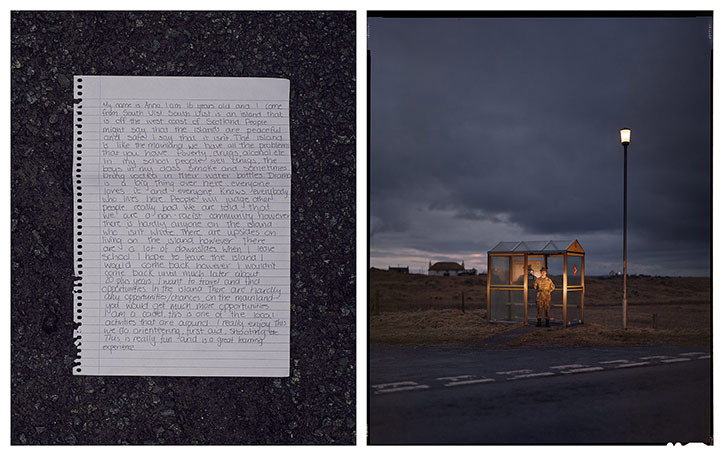 My name is Anna. I am 16 years old and I come
from South Uist. South Uist is an island that
is off the west coast of Scotland. People
might say that the islands are peaceful
and safe I say that it isn't. The island
is like the mainland we have all the problems
that you have. Poverty, drugs, alcohol etc.
In my school people sell drugs, the
boys in my class smoke and sometimes
bring vodka in their water bottles. Drama
is a big thing over here everyone
loves it and everyone knows everybody
who lives here. People will judge other
people really bad. We are told that
we are a non racist community however
there is hardly anyone on the island
who isn't white. There are upsides on
living on the island however there
are a lot of downsides. When I leave
school I hope to leave the island I
would come back however I wouldn't
come back until much later about
20 plus years. I want to travel and find
opportunities. In the island there are hardly
any opportunities/chances, on the mainland
you would get much more opportunities.
I am a cadet this is one of the local
activities that are around. I really enjoy this
we do orienteering, first aid, shooting etc.
This is really fun and is a great learning
experience.